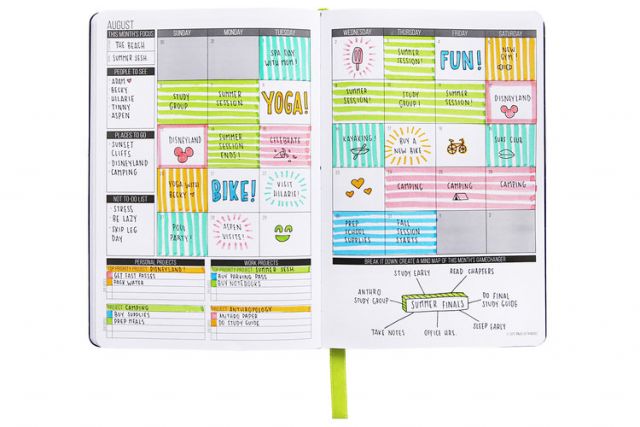 AUGUST
THIS MONTH'S FOCUS
SUNDAY
MONDAY
TUESDAY
THE BEACH
SUMMER SESH.
SPA DAY
WITH MOM!
PEOPLE TO SEE
ADAM
BECKY
HILARIE
TINNY
ASPEN
STUDY
GROUP
SUMMER
SESSION
YOGA!
PLACES TO GO
SUNSET
CLIFFS
DISNEYLAND
CAMPING
DISNEYLAND
SUMMER
SESSION
ENDS!
CELEBRATE
NOT TO-DO LIST
STRESS
BE LAZY
SKIP LEG
DAY
YOGA WITH
BECKY
BIKE!
VISIT
HILARIE!
POOL
PARTY!
ASPEN
VISITS!
PERSONAL PROJECTS
WORK PROJECTS
TOP PRIORITY PROJECT DISNEYLAND!
GET FAST PASSES
PACK WATER
TOP PRIORITY PROJECT SUMMER SESH
BUY PARKING PASS
BUY NOTEBOOKS
PROJECT CAMPING
BUY SUPPLIES
PREP MEALS
PROJECT ANTHROPOLOGY
ANTHRO PAPER
DO STUDY GUIDE
WEDNESDAY
THURSDAY
FRIDAY
SATURDAY
SUMMER
SESSION!
FUN!
NEW
GYM!
SUMMER
SESSION!
STUDY
GROUP!
SUMMER
SESSION!
DISNEYLAND
KAYAKING!
BUY A
NEW BIKE
SURF CLUB
CAMPING
CAMPING
CAMPING
PREP
SCHOOL
SUPPLIES
FALL
SESSION
STARTS
BREAK IT DOWN: CREATE A MIND MAP OF THIS MONTH'S GAMECHANGER
STUDY EARLY
READ CHAPTERS
ANTHRO
STUDY GROUP
SUMMER FINALS
DO FINAL
STUDY GUIDE
TAKE NOTES
OFFICE HRS.
SLEEP EARLY